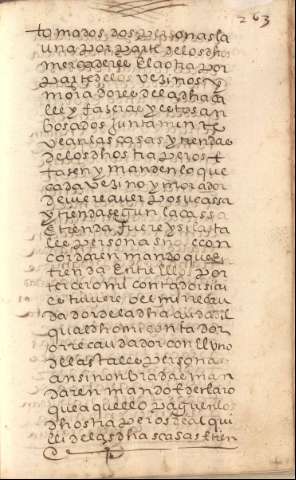 263
tomados dos personas la
una por parte de los dhos
mercaderes E la otra por
parte de los vezinos y
moradores de la dha ca
lle y taseias y estos an
bos a dos juntamente
vean las casas y tiendas
de los dhos traperos E
tasen y manden lo que
cada vezino y morador
deviere aver por su cassa
y tienda segun la cassa
E tienda fuere y si las ta
les personas no se con
cordaren mando que E
tienda Entre ellos por
tercero mi contador si ai
estuviere o el mi recau
dador de la dha cibdad El
qual dho mi contador
o rrecaudador con El uno
de las tales personas
ansi nonbradas E man
daren mando E declaro
que aquello paguen los
dhos traperos de al qui
ler de las dhas casas E tien